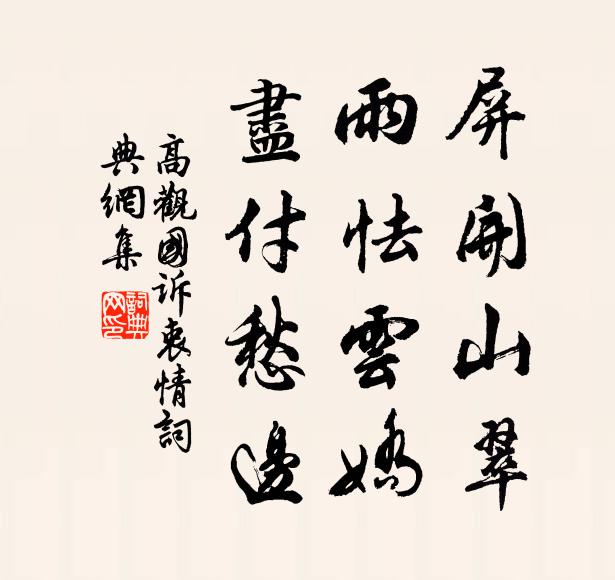 屏開山翠
雨怯雲嬌
盡付愁邊
高觀國訴衷情詞
典網集
詞典網印